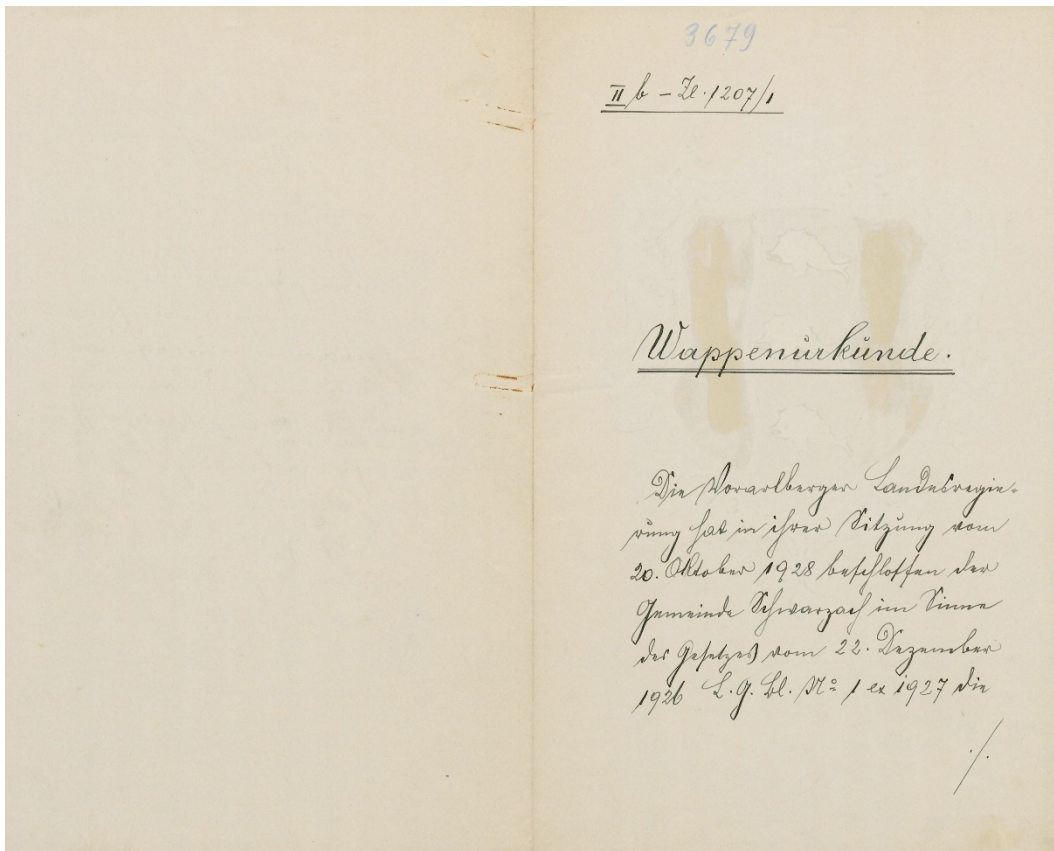 3679
II b - Zl. 1207/1
Wappenurkunde.
Die Vorarlberger Landesregie-
rung hat in ihrer Sitzung vom
20. Oktober 1928 beschlossen der
Gemeinde Schwarzach im Sinne
des Gesetzes vom 22. Dezember
1926 L. G. Bl. Nº 1 ex 1927 die
./.